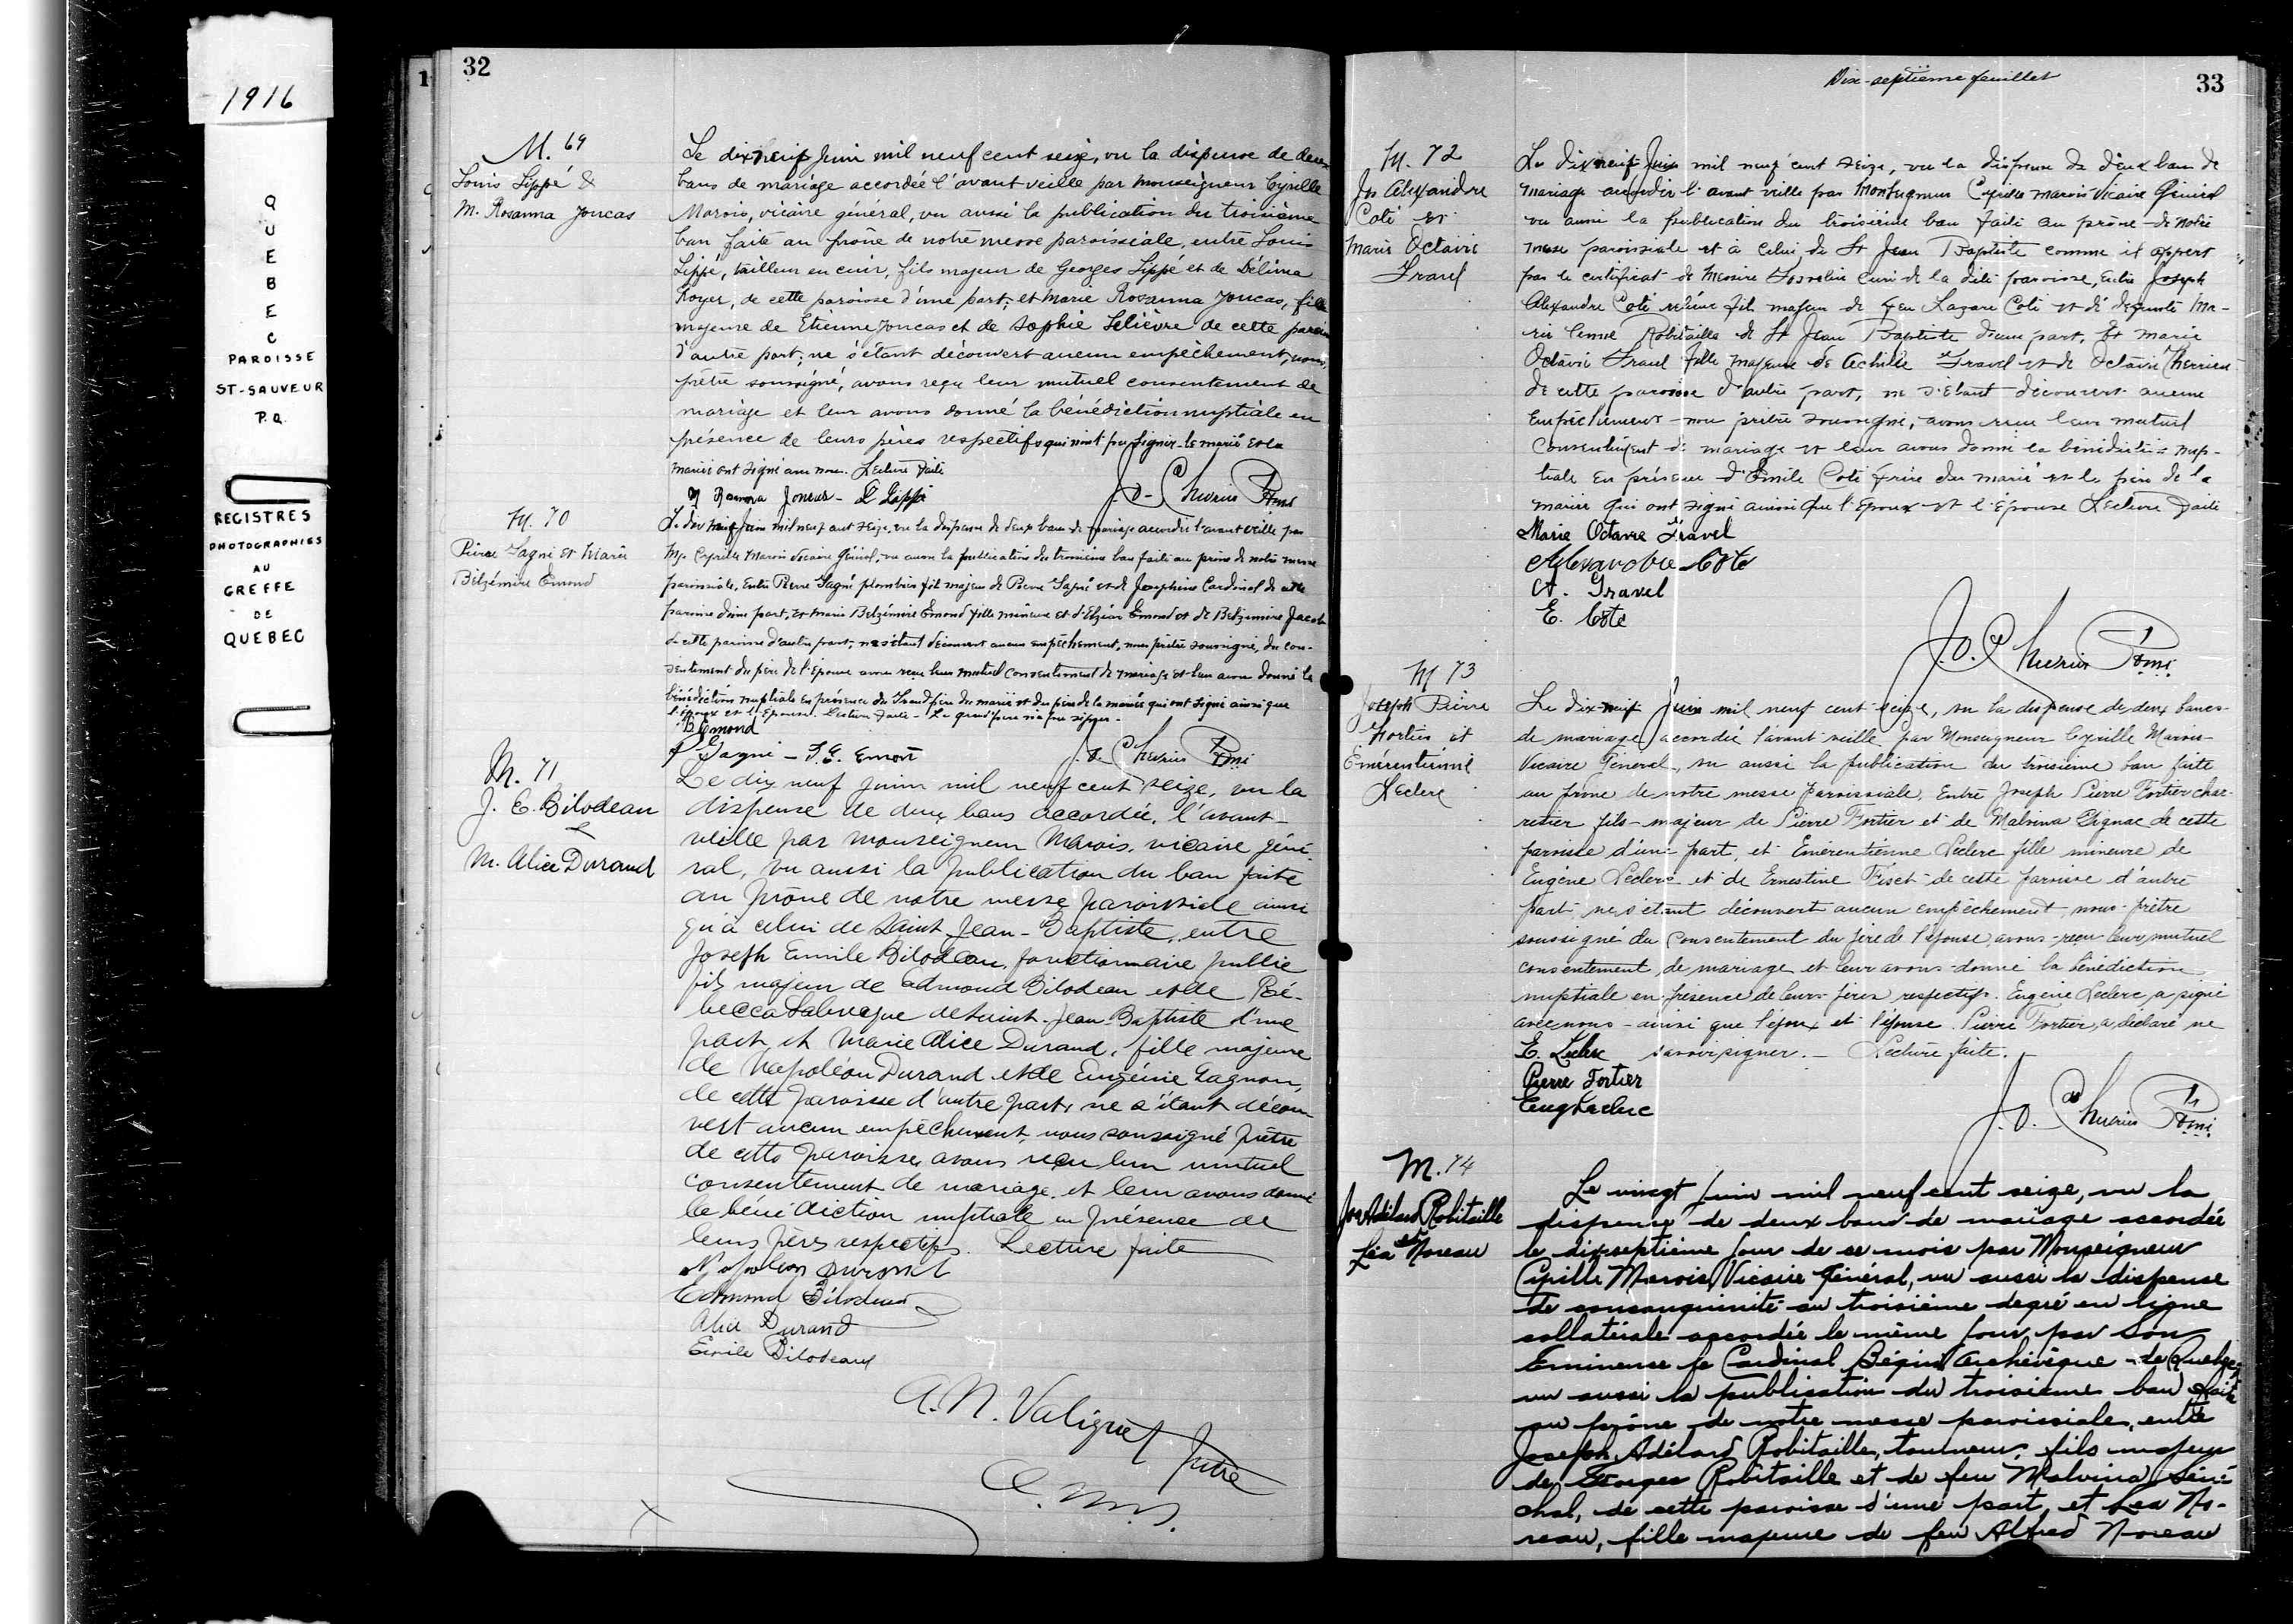 1916
QUEBEC
PAROISSE
ST-SAUVEUR
P.Q.
REGISTRES
PHOTOGRAPHIES
AU
GREFFE
DE
QUEBEC
32
M. 69
Louis Lippé &
M. Rosanna Joncas
Le dix neuf Juin mil neuf cent seize, vu la dispense de deux
bans de mariage accordée l'avant veille par Monseigneur Cyrille
Marois, vicaire général, vu aussi la publication du troisième
ban faite au prône de notre messe paroissiale, entre Louis
Lippé, tailleur en cuir, fils majeur de Georges Lippé et de Délima
Royer, de cette paroisse d'une part; et Marie Rosanna Joncas, fille
majeure de Etienne Joncas et de Sophie Lelièvre de cette paroisse
d'autre part; ne s'étant découvert aucun empêchement, nous,
prêtre soussigné, avons reçu leur mutuel consentement de
mariage et leur avons donné la bénédiction nuptiale en
présence de leurs pères respectifs qui n'ont pu signer. le marié et la
mariée ont signé avec nous. Lecture faite
M Rosanna Joncas - L Lippé
M. 70
Pierre Gagné et Marie
Belzémire Émond
Le dix neuf Juin mil neuf cent seize, vu la dispense de deux bans de mariage accordée l'avant veille par
Mgr Cyrille Marois Vicaire Général, vu aussi la publication du troisième ban faite au prône de notre messe
paroissiale, Entre Pierre Gagné plombier fils majeur de Pierre Gagné et de Joséphine Cardinal de cette
paroisse d'une part, et Marie Belzémire Émond fille mineure et d'Elzéar Émond et de Belzémire Jacob
de cette paroisse d'autre part, ne s'étant découvert aucun empêchement, nous prêtre soussigné, du con-
sentement du père de l'épouse avons reçu leur mutuel consentement de mariage et leur avons donné la
bénédiction nuptiale en présence du Grand père du marié et du père de la mariée qui ont signé ainsi que
l'époux et l'épouse. Lecture faite - Le grand père n'a pu signer.
B. Émond
P Gagné -
M. 71
J. E. Bilodeau
&
M. Alice Durand
Le dix neuf juin mil neuf cent seize, vu la
dispense de deux bans accordée, l'avant-
veille par monseigneur Marois, vicaire géné-
ral, vu aussi la publication du ban faite
au prône de notre messe paroissiale ainsi
qu'à celui de Saint Jean-Baptiste, entre
Joseph Emile Bilodeau, fonctionnaire public
fils majeur de Edmond Bilodeau et de Ré-
becca Labrecque de Saint-Jean-Baptiste d'une
part et Marie Alice Durand, fille majeure
de Napoléon Durand et de Eugénie Gagnon,
de cette paroisse d'autre part, ne s'étant décou-
vert aucun empêchement, nous soussigné prêtre
de cette paroisse, avons reçu leur mutuel
consentement de mariage et leur avons donné
la bénédiction nuptiale en présence de
leurs pères respectifs. Lecture faite
Napoléon Durand
Edmond Bilodeau
Alice Durand
Emile Bilodeau
A. N. Valiquet Ptre
33
Dix-septième feuillet
M. 72
Js Alexandre
Coté et
Marie Octavie
Gravel
Le dix neuf Juin mil neuf cent seize, vu la dispense de deux bans de
mariage accordée l'avant veille par Monseigneur Cyrille Marois Vicaire Général
vu aussi la publication du troisième ban faite au prône de notre
messe paroissiale et à celui de St Jean Baptiste comme il appert
par le certificat de Messire Gosselin Curé de la dite paroisse, Entre Joseph
Alexandre Coté fils majeur de feu Lazare Coté et de défunte Ma-
rie Robitaille de St Jean Baptiste d'une part, Et Marie
Octavie Gravel fille majeure de Achille Gravel et de Octavie Therrien
de cette paroisse d'autre part, ne s'étant découvert aucun
Empêchement nous prêtre soussigné, avons reçu leur mutuel
Consentement de mariage et leur avons donné la bénédiction nup-
tiale En présence d'Émile Coté frère du marié et le père de la
mariée qui ont signé ainsi que l'Époux et l'Épouse Lecture faite
Marie Octavie Gravel
Alexandre Côté
A. Gravel
E. Côté
M 73
Joseph Pierre
Fortier et
Émérentienne
Leclerc
Le dix-neuf Juin mil neuf cent seize, vu la dispense de deux bancs
de mariage accordée l'avant-veille par Monseigneur Cyrille Marois
Vicaire Général, vu aussi la publication du troisième ban faite
au prone de notre messe paroissiale. Entre Joseph Pierre Fortier char-
retier fils majeur de Pierre Fortier et de Malvina Gignac de cette
paroisse d'une part, et Emérentienne Leclerc fille mineure de
Eugène Leclerc et de Ernestine Fiset de cette paroisse d'autre
part, ne s'étant découvert aucun empêchement, nous prêtre
soussigné du consentement du père de l'épouse, avons reçu leur mutuel
consentement de mariage et leur avons donné la bénédiction
nuptiale en présence de leurs pères respectifs. Eugène Leclerc a signé
avec nous ainsi que l'époux et l'épouse. Pierre Fortier a déclaré ne
savoir signer. — Lecture faite. —
E. Leclerc
Pierre Fortier
Eug Leclerc
M. 74
Jos Adélard Robitaille
et
Léa Noreau
Le vingt juin mil neuf cent seize, vu la
dispense de deux bans de mariage accordée
le dix-septième jour de ce mois par Monseigneur
Cyrille Marois, Vicaire Général, vu aussi la dispense
de consanguinité au troisième degré en ligne
collatérale accordée le même jour par Son
Eminence le Cardinal Bégin Archevêque de Québec,
vu aussi la publication du troisième ban faite
au prône de notre messe paroissiale, entre
Joseph Adélard Robitaille, tourneur, fils majeur
de Georges Robitaille et de feu Malvina Séné-
chal, de cette paroisse d'une part, et Léa No-
reau, fille majeure de feu Alfred Noreau